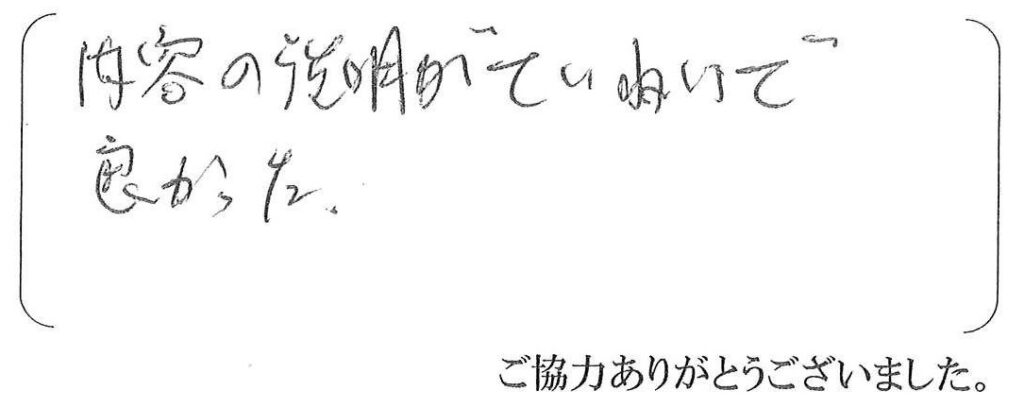 内容の説明がていねいで
良かった.
ご協力ありがとうございました。